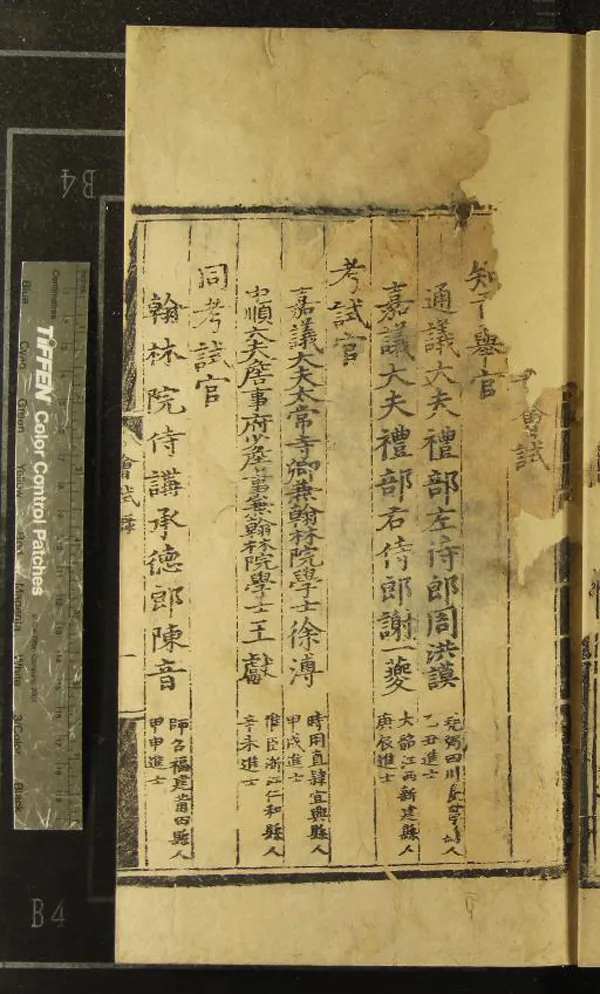 會試
知貢舉官
通議大夫禮部左侍郎周洪謨
堯弼四川長寧縣人
乙丑進士
嘉議大夫禮部右侍郎謝一夔
大韶江西新建縣人
庚辰進士
考試官
嘉議大夫太常寺卿兼翰林院學士徐溥
時用直隸宜興縣人
甲戌進士
中順大夫詹事府少詹事兼翰林院學士王獻
惟臣浙江仁和縣人
辛未進士
同考試官
翰林院侍講承德郎陳音
師召福建莆田縣人
甲申進士
會試錄
一
B4
B4
TIFFEN Color Control Patches
Centimetres
Blue
Cyan
Green
Yellow
Red
Magenta
White
3/Color
Black